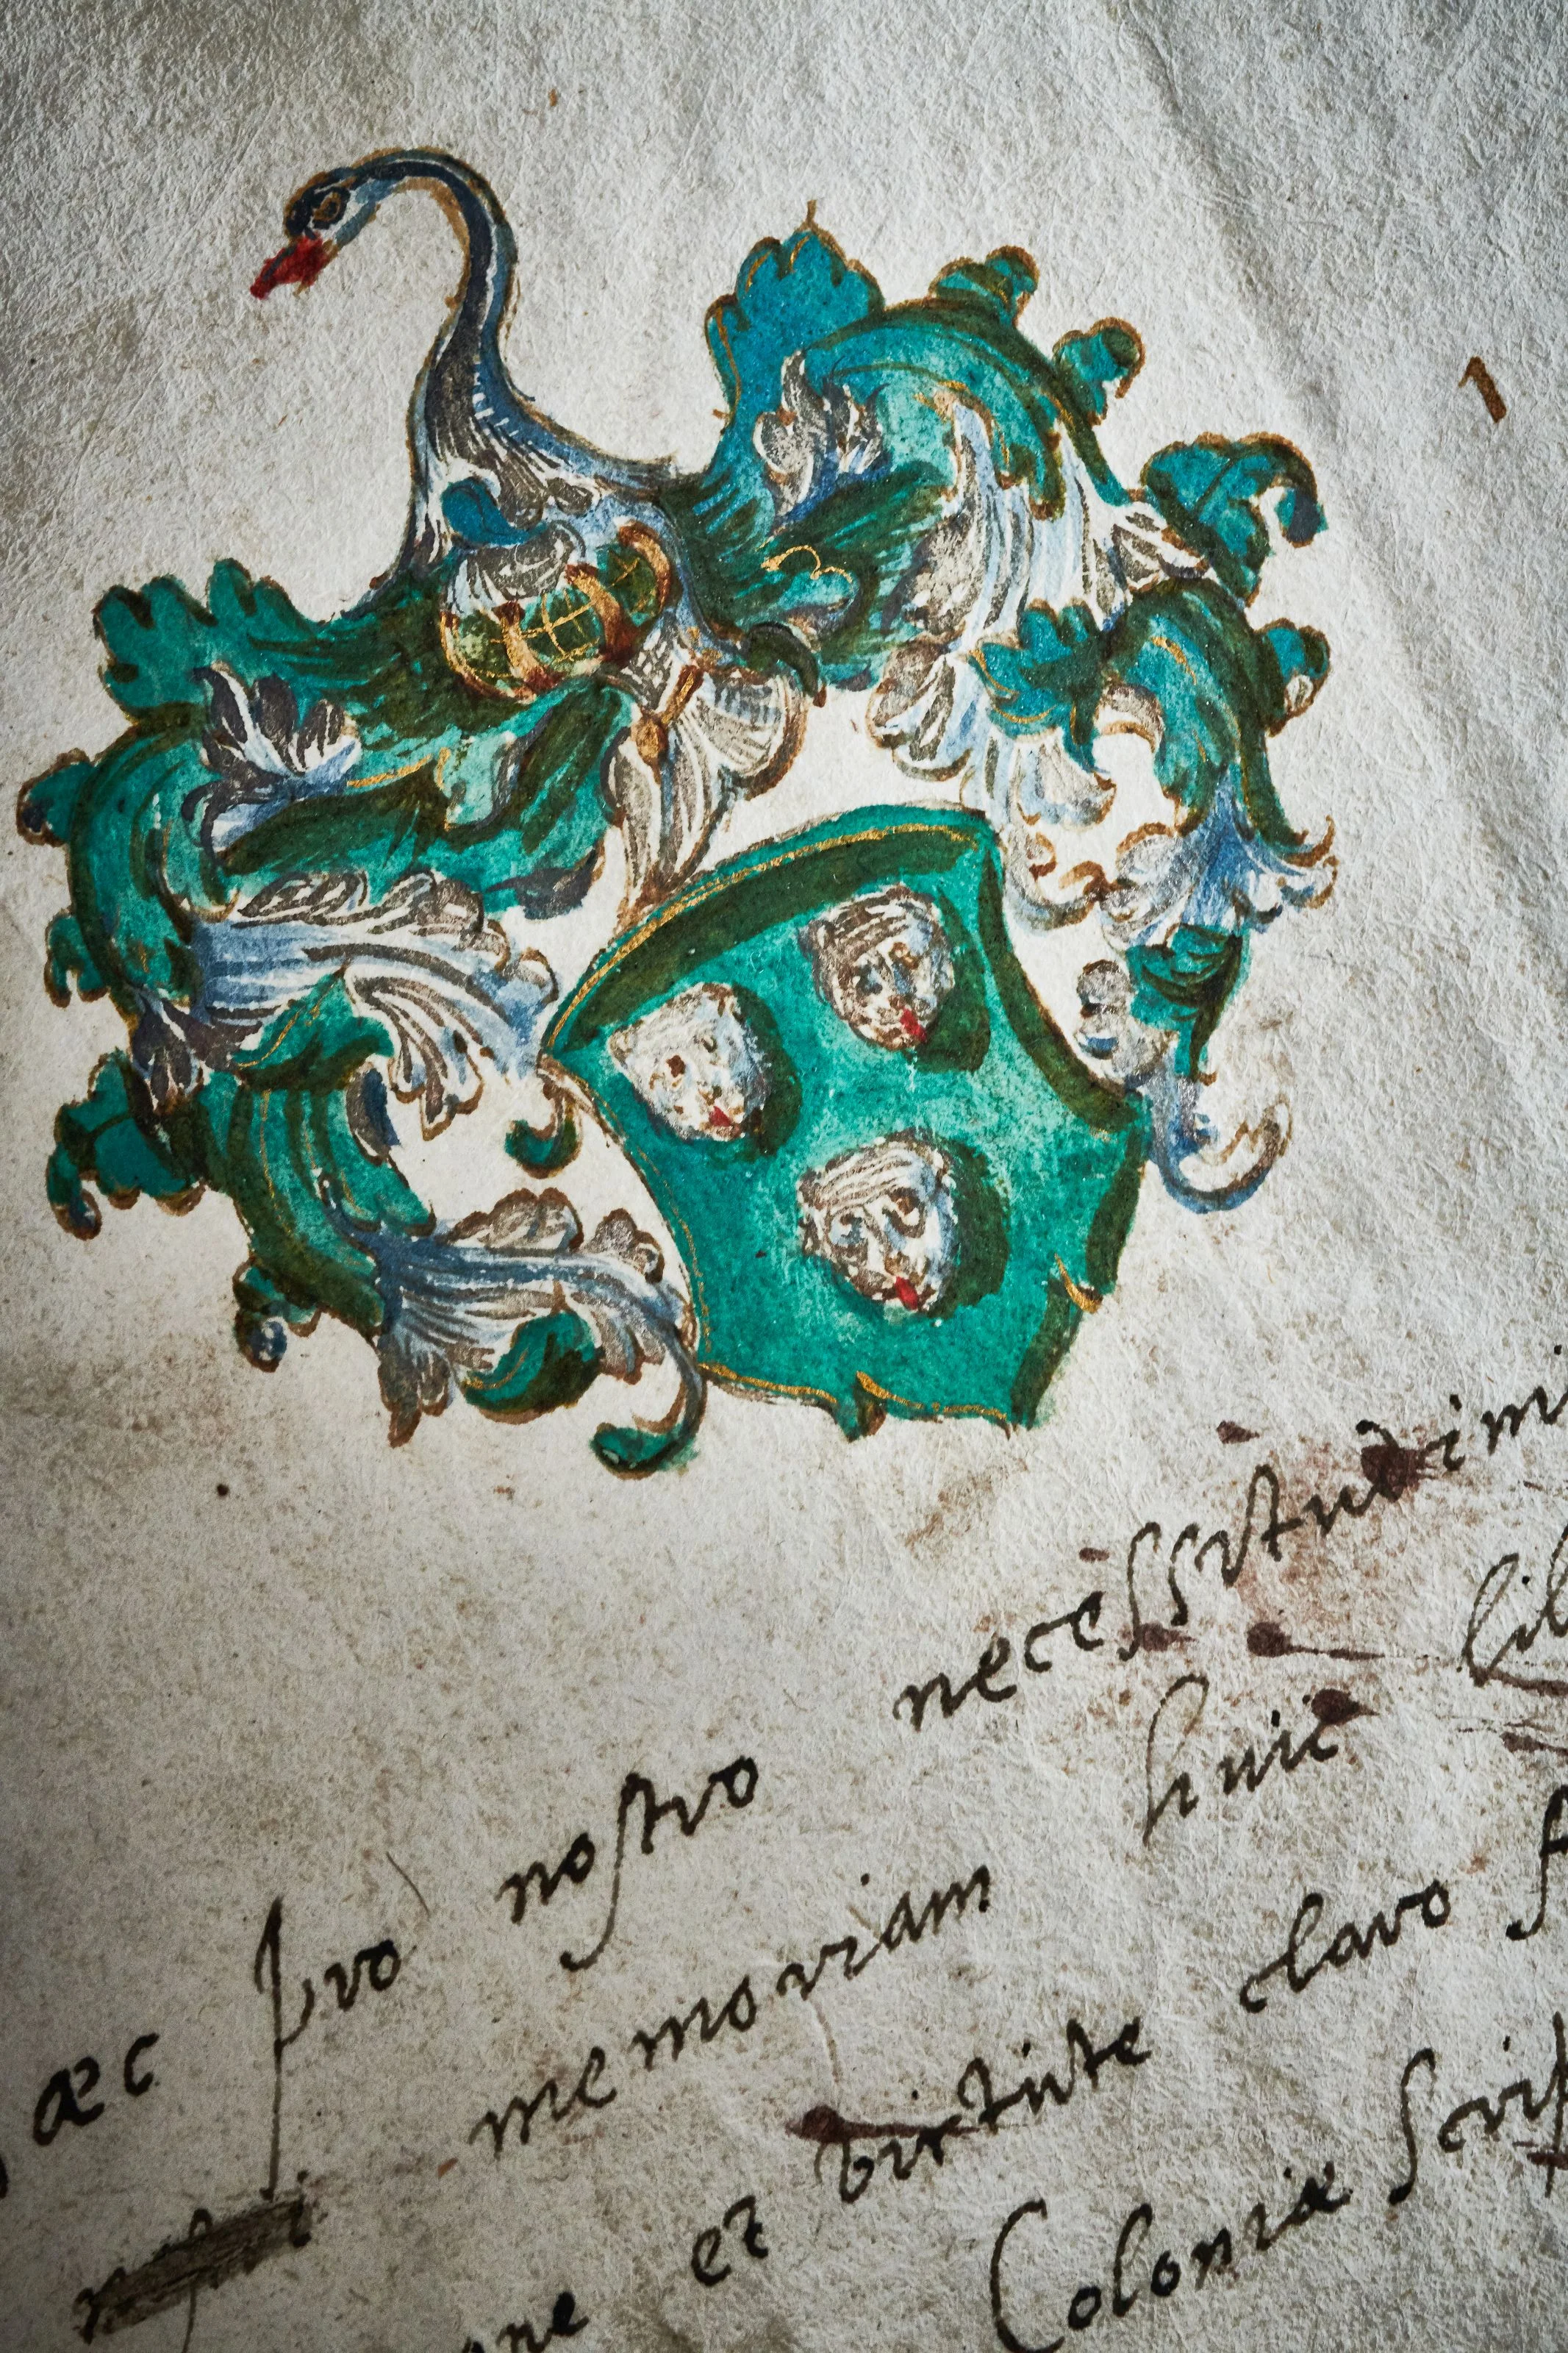 1
æc pro nostro necessitudinis
memoriam huic lib
et virtute claro
Coloniæ Scrip